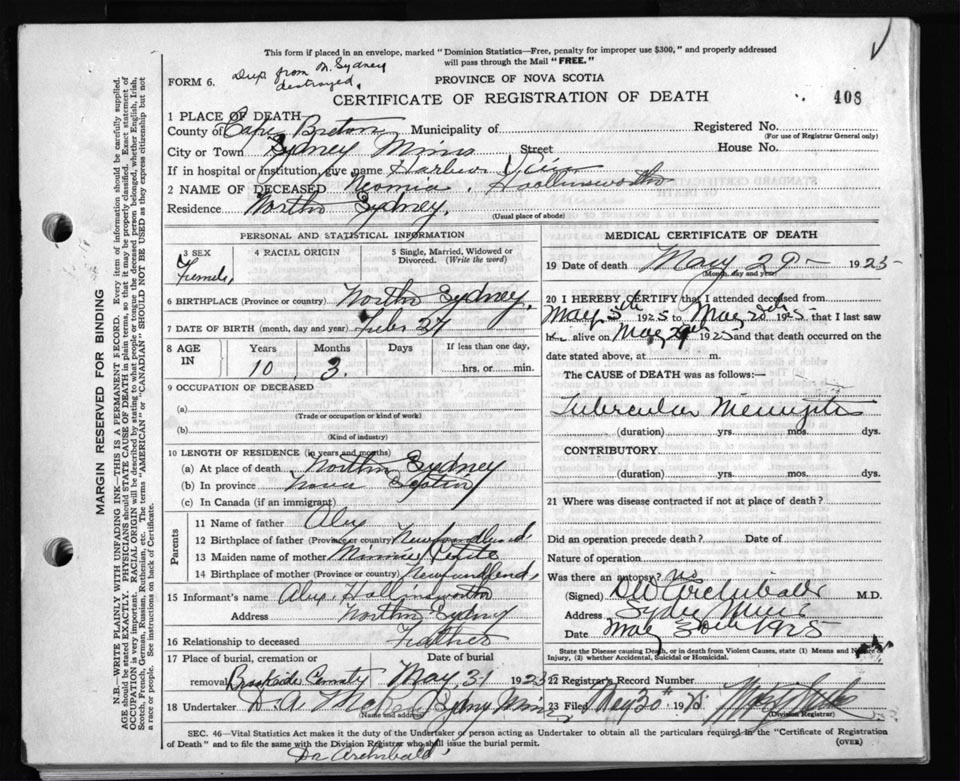 This form if placed in an envelope, marked "Dominion Statistics—Free, penalty for improper use $300," and properly addressed
will pass through the Mail "FREE."
FORM 6.
Dup from N. Sydney
destroyed.
PROVINCE OF NOVA SCOTIA
CERTIFICATE OF REGISTRATION OF DEATH
408
1 PLACE OF DEATH—
County of Cape Breton Municipality of Registered No.
(For use of Registrar General only)
City or Town Sydney Mines Street House No.
If in hospital or institution, give name Harbor View
2 NAME OF DECEASED Neomia Hollinsworth
Residence North Sydney.
(Usual place of abode)
PERSONAL AND STATISTICAL INFORMATION
3 SEX 4 RACIAL ORIGIN 5 Single, Married, Widowed or
Divorced. (Write the word)
6 BIRTHPLACE (Province or country) North Sydney.
7 DATE OF BIRTH (month, day and year) 27
8 AGE IN Years Months Days If less than one day,
10 3. hrs. or min.
9 OCCUPATION OF DECEASED
(a)
(Trade or occupation or kind of work)
(b)
(Kind of industry)
10 LENGTH OF RESIDENCE (in years and months)
(a) At place of death North Sydney
(b) In province Nova Scotia
(c) In Canada (if an immigrant)
Parents
11 Name of father Alex
12 Birthplace of father (Province or country) Newfoundland
13 Maiden name of mother Minnie
14 Birthplace of mother (Province or country) Newfundland
15 Informant's name Alex. Hollinsworth
Address North Sydney
16 Relationship to deceased Father
17 Place of burial, cremation or Date of burial
removal Brookside May 31 1925
18 Undertaker D. A. Sydney Mines
(Name and address)
MEDICAL CERTIFICATE OF DEATH
19 Date of death May 29 — 1925
(Month, day and year)
20 I HEREBY CERTIFY that I attended deceased from
May 5th 1925 to May 28th 1925 that I last saw
alive on May 29th 1925 and that death occurred on the
date stated above, at m.
The CAUSE OF DEATH was as follows:—
Tubercular Meningitis
(duration) yrs. mos. dys.
CONTRIBUTORY.
(duration) yrs. mos. dys.
21 Where was disease contracted if not at place of death?
Did an operation precede death? Date of
Nature of operation
Was there an autopsy? no
(Signed) DW Archibald M.D.
Address Sydney Mines
Date May 30th 1925
State the Disease causing Death, or in death from Violent Causes, state (1) Means and Nature of
Injury, (2) whether Accidental, Suicidal or Homicidal.
22 Registrar's Record Number
23 Filed May 30th 19
(Division Registrar)
SEC. 46—Vital Statistics Act makes it the duty of the Undertaker or person acting as Undertaker to obtain all the particulars required in the "Certificate of Registration
of Death" and to file the same with the Division Registrar who shall issue the burial permit.
(OVER)
Dr Archibald
MARGIN RESERVED FOR BINDING
N.B.—WRITE PLAINLY WITH UNFADING INK—THIS IS A PERMANENT RECORD. Every item of information should be carefully supplied.
AGE should be stated EXACTLY. PHYSICIANS should STATE CAUSE OF DEATH in plain terms, so that it may be properly classified. Exact statement of
OCCUPATION is very important. RACIAL ORIGIN will be described by stating to what people or tongue the deceased person belonged, whether English, Irish,
Scotch, French, German, Russian, Ruthenian, etc. The terms "AMERICAN" or "CANADIAN" SHOULD NOT BE USED as they express citizenship but not
a race or people. See instructions on back of Certificate.